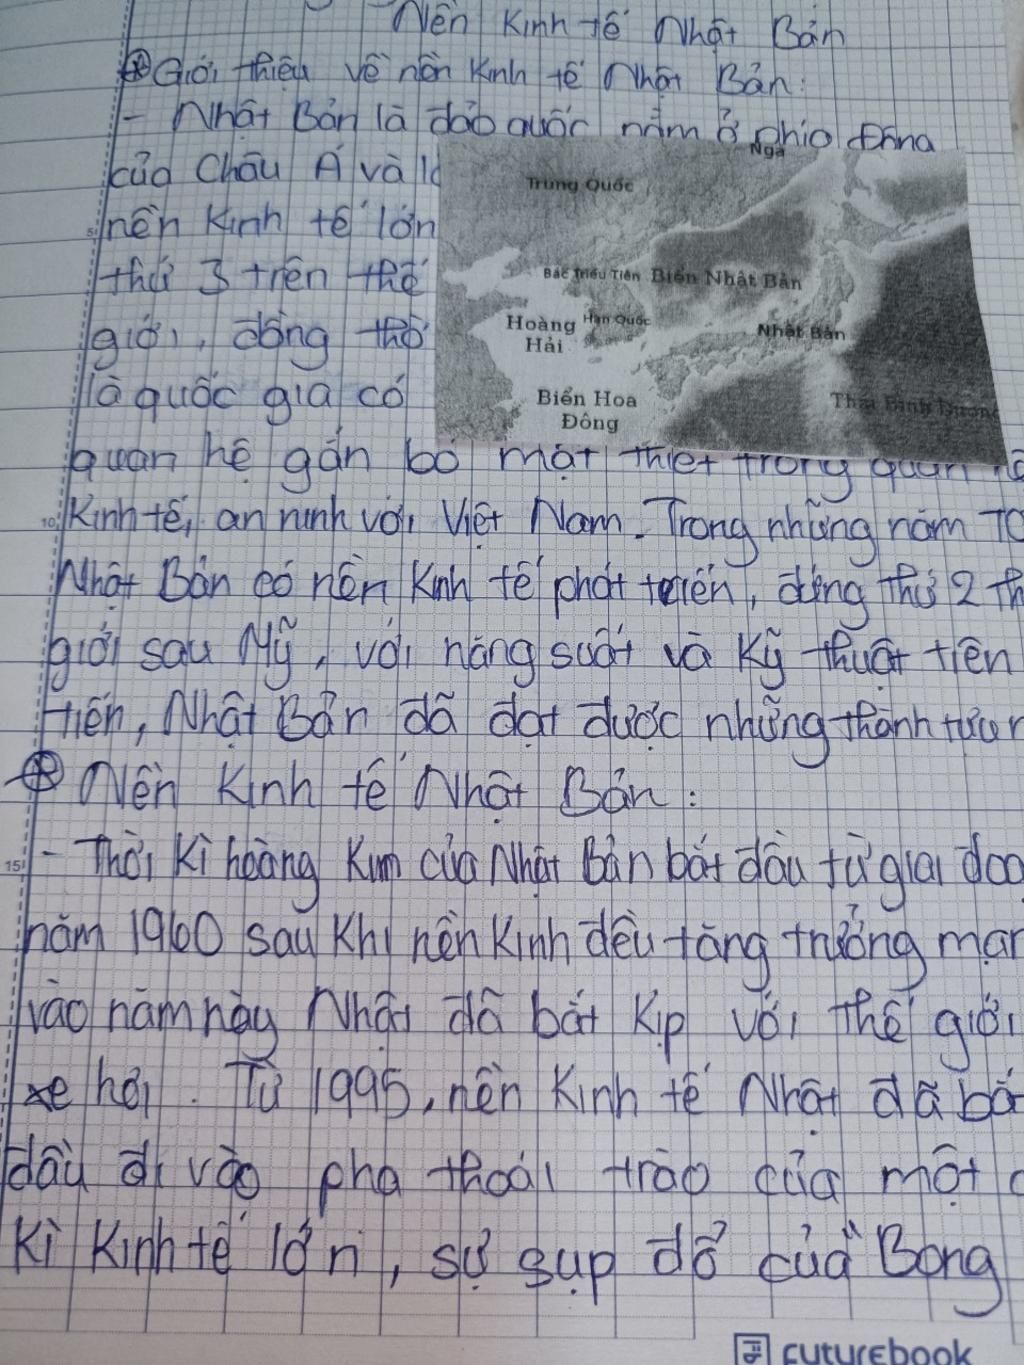 Nền Kinh tế Nhật Bản
Giới thiệu về nền Kinh tế Nhật Bản:
- Nhật Bản là đảo quốc nằm ở phía Đông
của Châu Á và là
nền Kinh tế lớn
thứ 3 trên thế
giới, đồng thờ
là quốc gia có
quan hệ gắn bó mật thiết trong quan hệ
Kinh tế, an ninh với Việt Nam. Trong những năm 70
Nhật Bản có nền Kinh tế phát triển, đứng thứ 2 th
giới sau Mỹ, với năng suất và Kỹ thuật tiên
tiến, Nhật Bản đã đạt được những thành tựu
Nền Kinh tế Nhật Bản:
- Thời Kì hoàng Kim của Nhật Bản bắt đầu từ giai đoạ
năm 1960 sau Khi nền Kinh đều tăng trưởng mạn
vào năm này Nhật đã bắt Kịp với thế giới
xe hơi. Từ 1995, nền Kinh tế Nhật đã bắ
đầu đi vào pha thoái trào của một c
Kì Kinh tế lớn, sự sụp đổ của "Bong
Nga
Trung Quốc
Bắc Triều Tiên
Biển Nhật Bản
Hoàng Hải
Hàn Quốc
Nhật Bản
Biển Hoa
Đông
Thái Bình Dương
5
10
15
futurebook